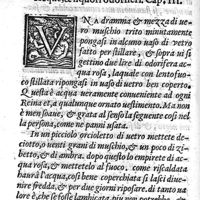 Cap. III.
VNa dramma e mezza di ue-
ro muschio trito minutamente
pongasi in alcuno uaso di uetro
fatto per stillare, e sopra ui si
gettino due lire di odorifera ac
qua rosa, laquale con lento fuo
co stillata ripongasi in uaso di uetro ben coperto.
Questa è acqua ueramente conueniente ad ogni
Reina et, a qualunque ornato uestimento. Ma non
è men soaue, e grata al senso la seguente così nel
la persona, come ne panni usata.
In un picciolo orcioletto di uetro mettete de
ciotto, o uenti grani di muschio, e un poco di zi-
betto, e di ambra. dopo questo lo empirete di ac
qua rosa, e mettetelo al fuoco, come riscaldata
haurà l'acqua, così bene coperchiata si lasci diue
nire fredda, e per due giorni riposare. di tanto ua
lore è che se fosse lambiccata più non potrebbe